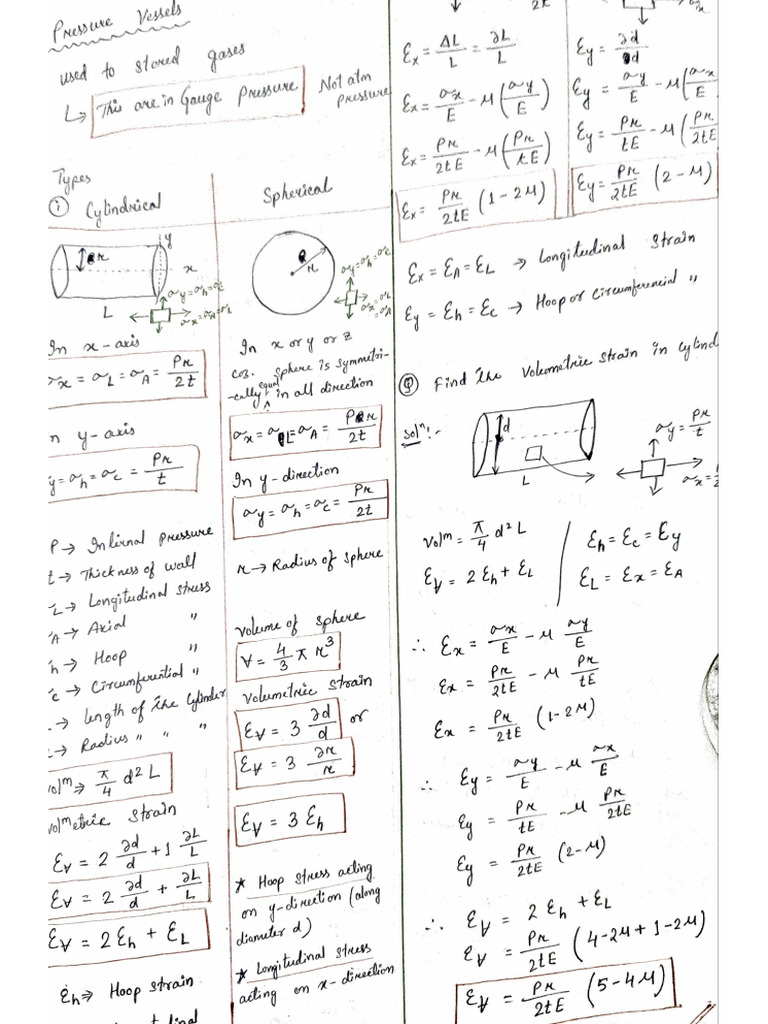 Pressure Vessels
used to stored gases
↳ This are in Gauge Pressure Not atm Pressure
Types
① Cylindrical
r
y
x
L
σy=σh=σc
σx=σA=σL
In x-axis
σx = σL = σA = Pr/2t
In y-axis
y = σh = σc = Pr/t
P → Internal pressure
t → Thickness of wall
L → Longitudinal stress
A → Axial "
h → Hoop "
c → Circumferential "
→ Length of the Cylinder
→ Radius " " "
Volm ⇒ π/4 d² L
Volmetric Strain
ε∀ = 2 ∂d/d + 1 ∂L/L
ε∀ = 2 ∂d/d + ∂L/L
ε∀ = 2εh + εL
εh ⇒ Hoop Strain
Spherical
r
σy=σh=σc
σx=σL=σA
In x or y or z
coz. sphere is symmetri-
-cally equal in all direction
σx = σL = σA = Pr/2t
In y-direction
σy = σh = σc = Pr/2t
r → Radius of sphere
Volume of sphere
∀ = 4/3 π r³
Volumetric Strain
ε∀ = 3 ∂d/d or
ε∀ = 3 ∂r/r
ε∀ = 3 εh
* Hoop stress acting
on y-direction (along
diameter d)
* Longitudinal stress
acting on x-direction
2t
εx = ΔL/L = ∂L/L
εx = σx/E - μ(σy/E)
εx = Pr/2tE - μ(Pr/tE)
εx = Pr/2tE (1-2μ)
σx
εy = ∂d/d
εy = σy/E - μ(σx/E
εy = Pr/tE - μ(Pr/2tE
εy = Pr/2tE (2-μ)
εx = εA = εL → Longitudinal Strain
εy = εh = εc → Hoop or Circumferencial "
Q Find the Volumetric strain in Cylind
Solⁿ:-
d
L
σy = Pr/t
σx =
Volm = π/4 d² L
ε∀ = 2εh + εL
εh = εc = εy
εL = εx = εA
∴ εx = σx/E - μ σy/E
εx = Pr/2tE - μ Pr/tE
εx = Pr/2tE (1-2μ)
∴ εy = σy/E - μ σx/E
εy = Pr/tE - μ Pr/2tE
εy = Pr/2tE (2-μ)
∴ ε∀ = 2εh + εL
ε∀ = Pr/2tE (4-2μ+1-2μ)
ε∀ = Pr/2tE (5-4μ)